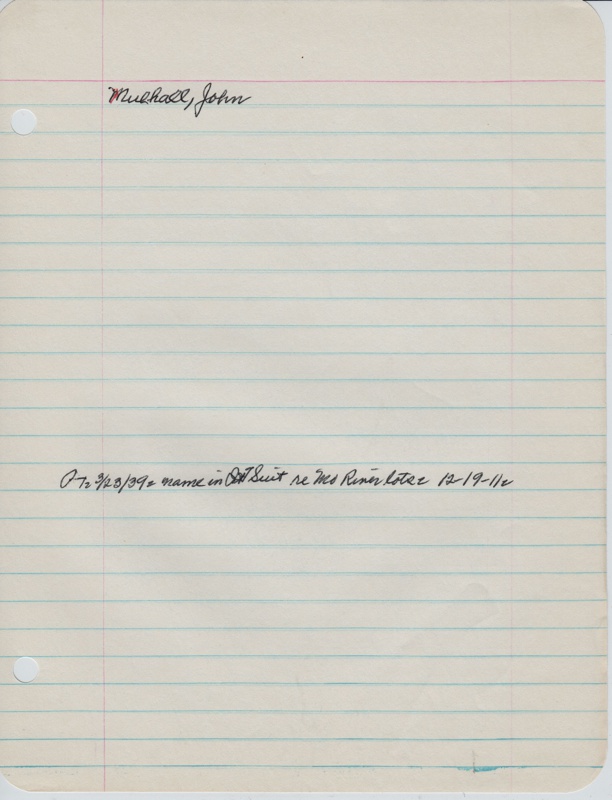 Mulhall, John
P7= 3/23/39= name in Suit re Mo River lots= 12-19-11=